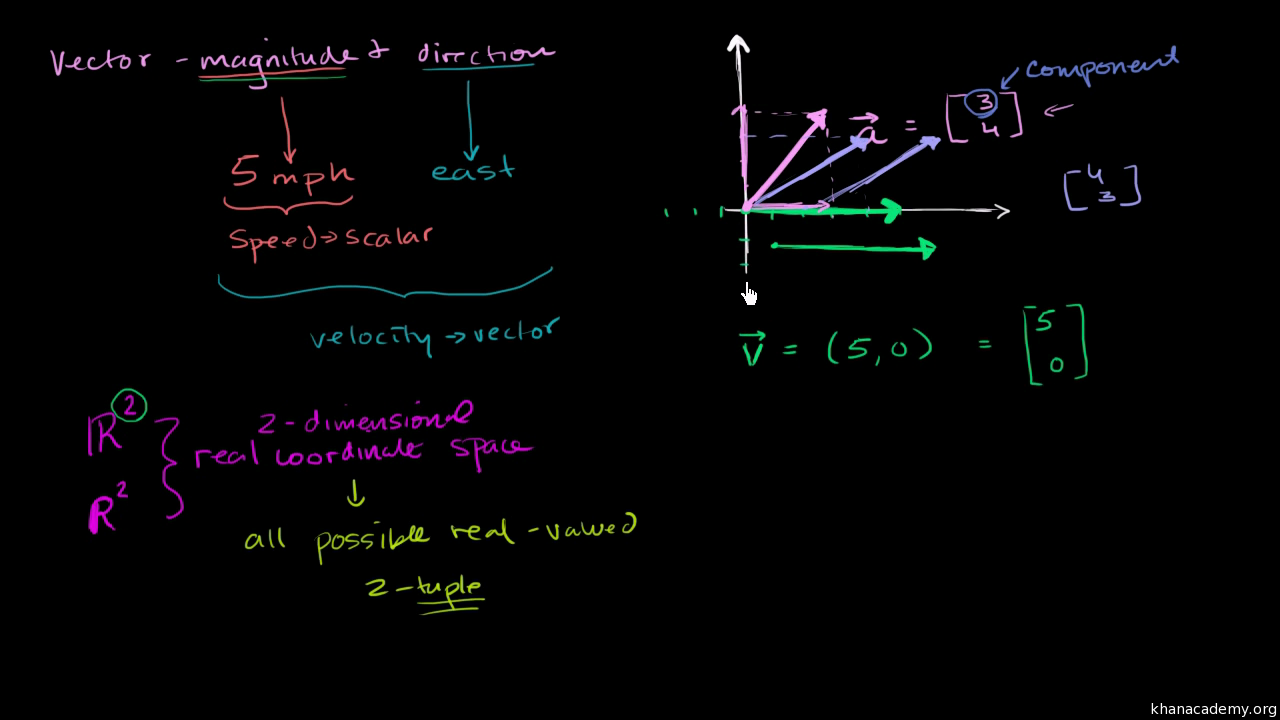 Vector - magnitude & direction
5 mph
east
Speed → scalar
velocity → vector
ℝ²
R²
2-dimensional
real coordinate space
all possible real-valued
2-tuple
component
a = [3
4]
[4
3]
v = (5,0) = [5
0]
khanacademy.org